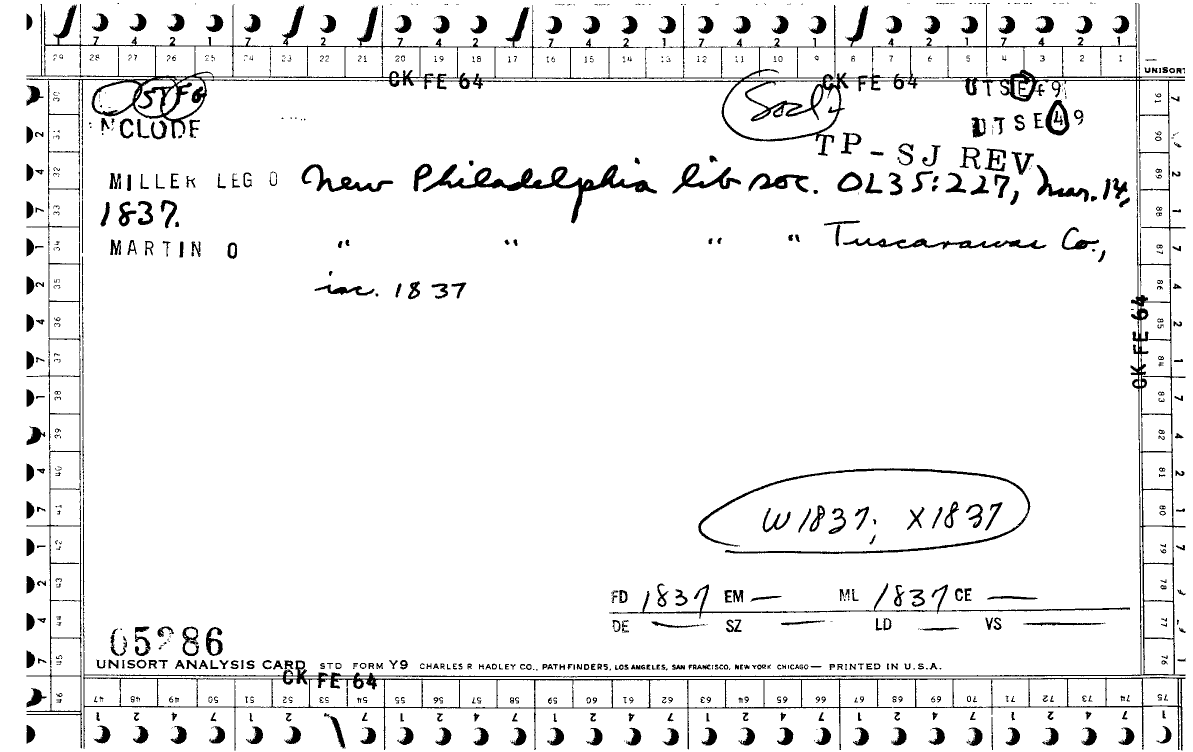 7 4 2 1 7 4 2 1 7 4 2 1 7 4 2 1 7 4 2 1 7 4 2 1 7 4 2 1
29 28 27 26 25 24 23 22 21 20 19 18 17 16 15 14 13 12 11 10 9 8 7 6 5 4 3 2 1
CK FE 64 CK FE 64 UNISORT
5T FG Socl UTSE49
NCLODE UTSE49
TP-SJ REV
MILLER LEG O New Philadelphia lib soc. OL35:227, Mar. 14,
1837.
MARTIN O " " " " Tuscarawas Co.,
inc. 1837
CK FE 64
W1837; X1837
FD 1837 EM — ML 1837 CE —
DE — SZ — LD — VS —
05286
UNISORT ANALYSIS CARD STD FORM Y9 CHARLES R HADLEY CO., PATHFINDERS, LOS ANGELES, SAN FRANCISCO, NEW YORK CHICAGO — PRINTED IN U.S.A.
CK FE 64
47 48 49 50 51 52 53 54 55 56 57 58 59 60 61 62 63 64 65 66 67 68 69 70 71 72 73 74 75